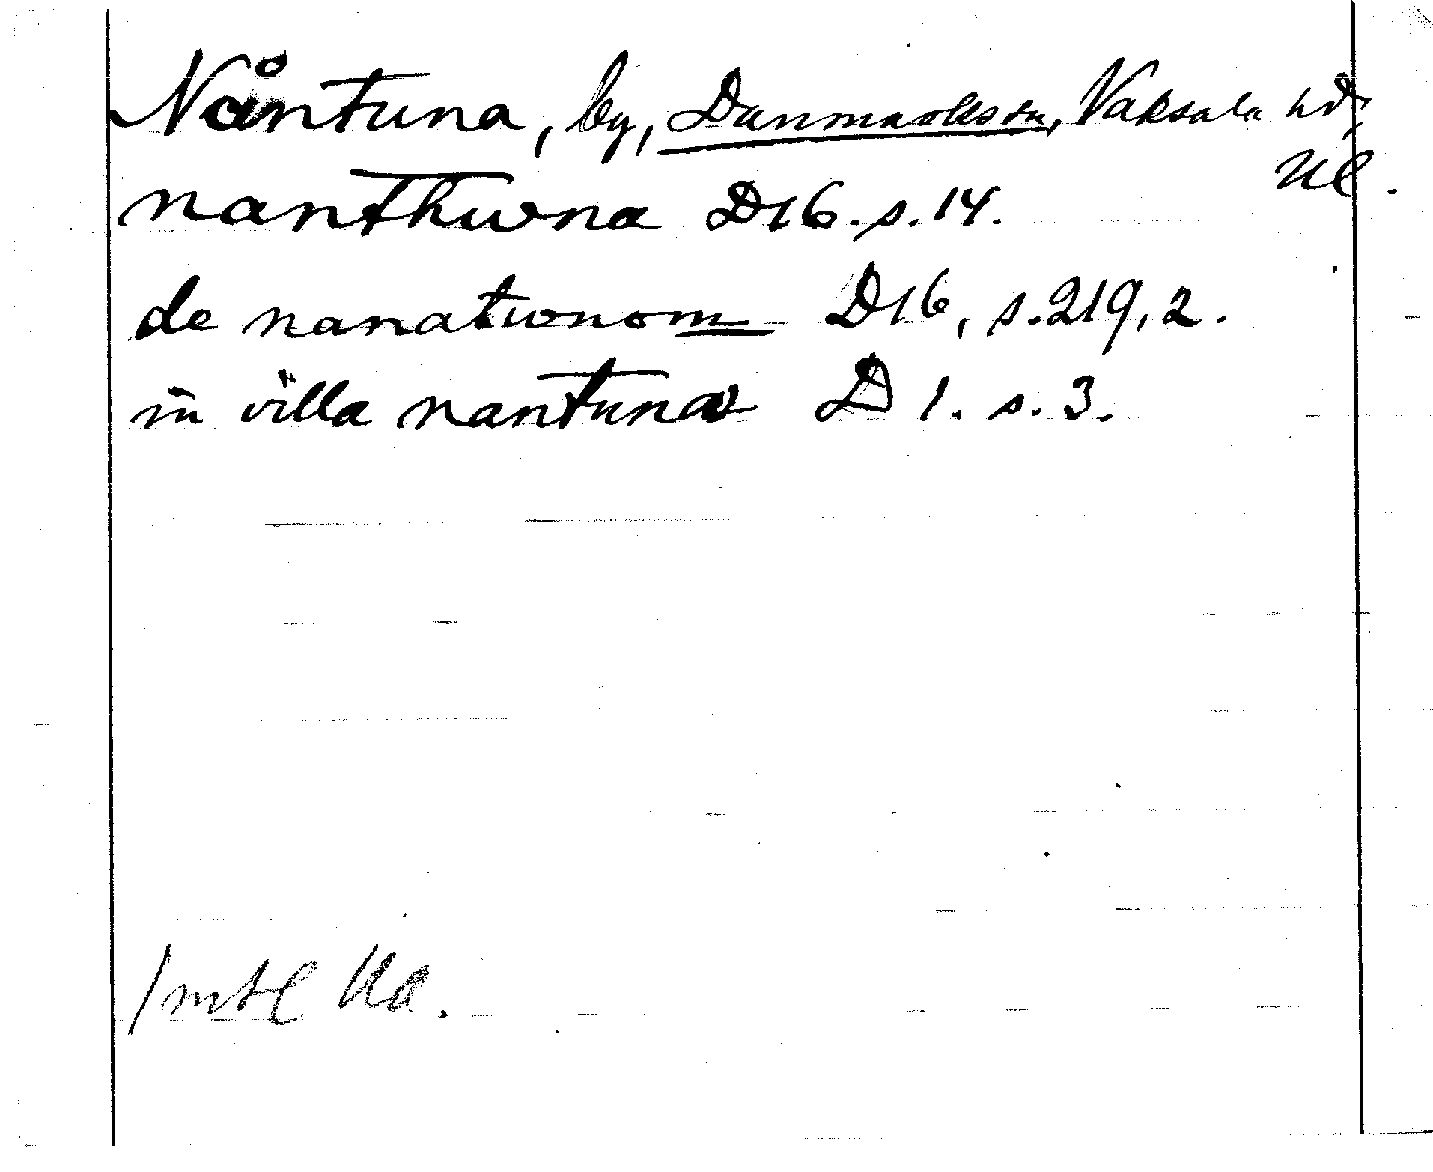 Nåntuna, by, Danmarks sn, Vaksala hd,
Ul.
nanthwna D16. s. 14.
de nanatwnom D16, s. 219, 2.
in villa nantuna D 1. s. 3.